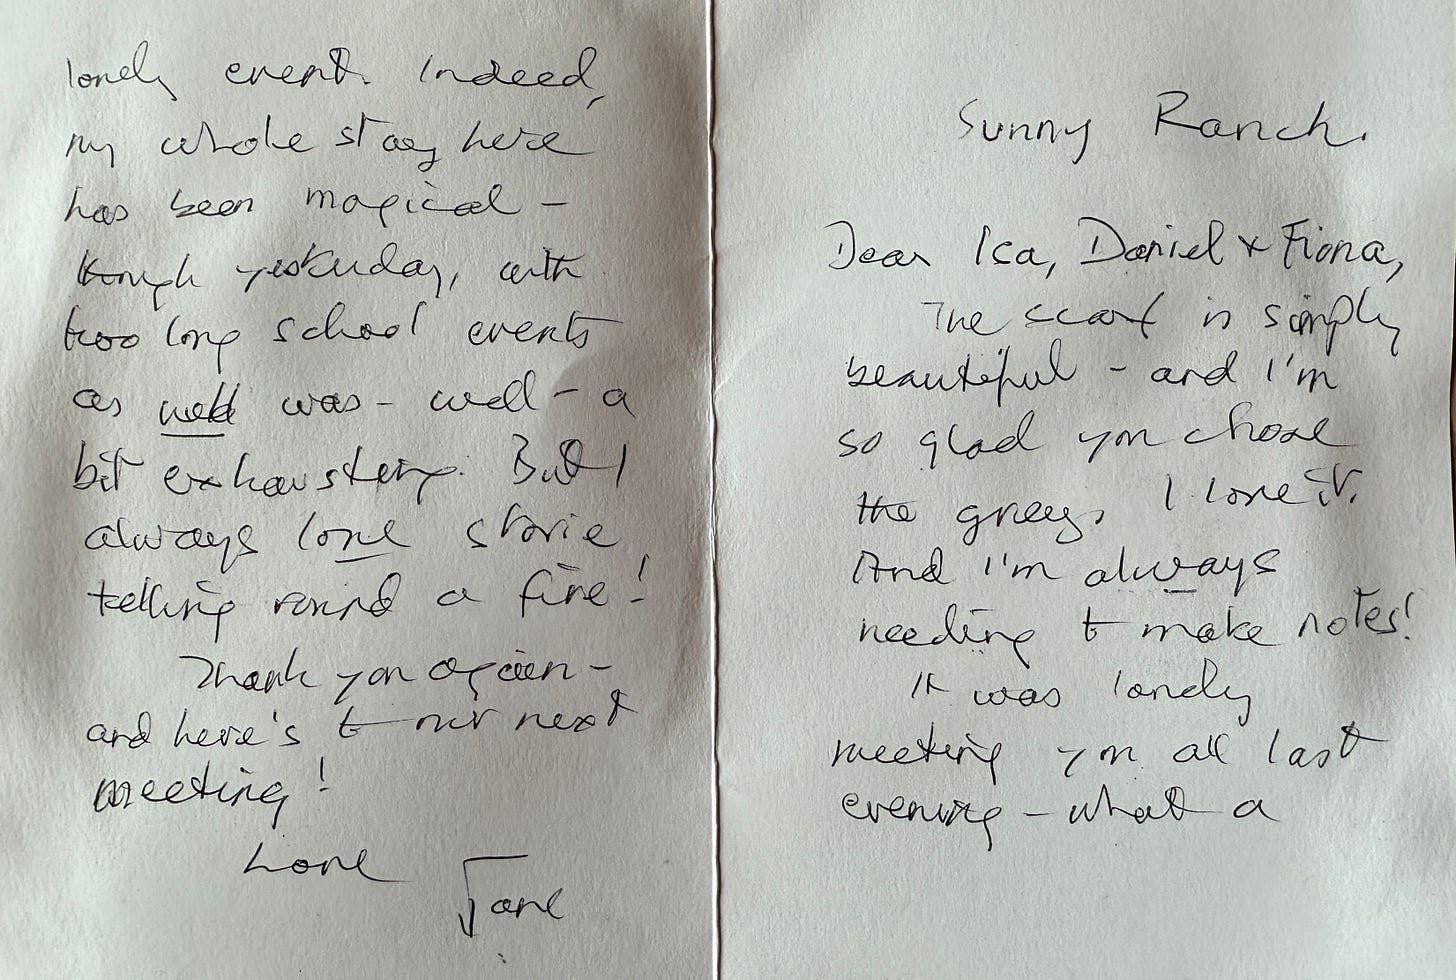 Sunny Ranch.
Dear Isa, Daniel & Fiona,
The scarf is simply
beautiful - and I'm
so glad you chose
the greys. I love it.
And I'm always
needing to make notes!
It was lovely
meeting you all last
evening - what a
lovely event. Indeed,
my whole stay here
has been magical -
though yesterday, with
two long school events
as well was - well - a
bit exhausting. But I
always love storie
telling round a fire!
Thank you again -
and here's to our next
meeting!
Love
Jane